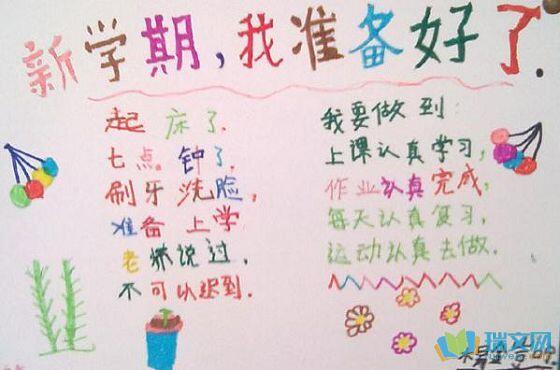 新学期,我准备好了.
起床了.
七点钟了.
刷牙洗脸,
准备上学
老师说过,
不可以迟到.
我要做到:
上课认真学习,
作业认真完成,
每天认真复习,
运动认真去做.
瑞文网